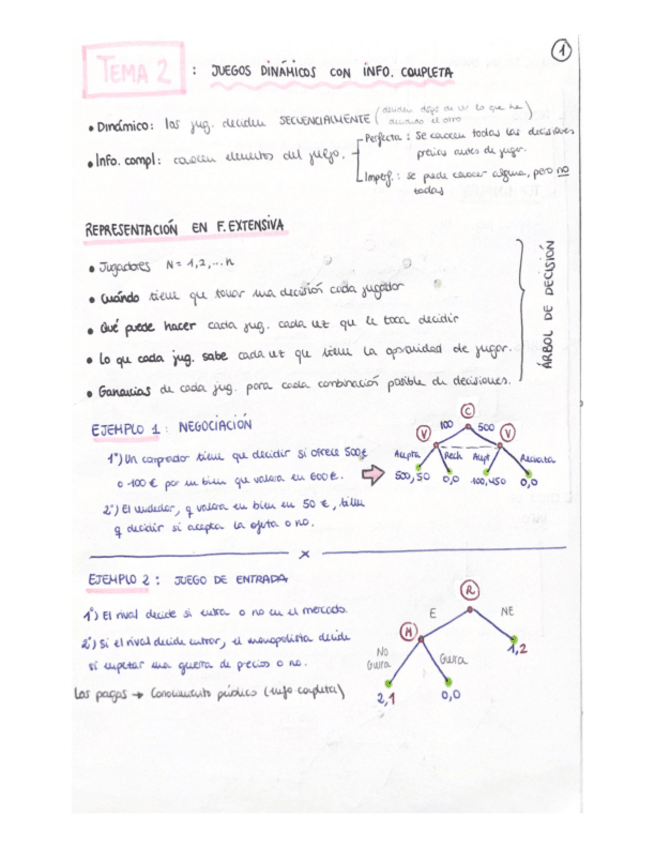 1
TEMA 2 : JUEGOS DINÁMICOS CON INFO. COMPLETA
• Dinámico: los jug. deciden SECUENCIALMENTE (deciden desp de ver lo que ha
decidido el otro)
• Info. compl: conocen elementos del juego.
Perfecta: Se conocen todas las decisiones
previas antes de jugar.
Imperf.: se puede conocer alguna, pero no
todas
REPRESENTACIÓN EN F. EXTENSIVA
• Jugadores N = 1,2,...n
• Cuándo tiene que tomar una decisión cada jugador
• Qué puede hacer cada jug. cada vez que le toca decidir
• Lo que cada jug. sabe cada vez que tiene la oportunidad de jugar.
• Ganancias de cada jug. para cada combinación posible de decisiones.
ÁRBOL DE DECISIÓN
EJEMPLO 1: NEGOCIACIÓN
1º) Un comprador tiene que decidir si ofrece 500€
o 100€ por un bien que valora en 600€.
2º) El vendedor, q valora en bien en 50€, tiene
q decidir si acepta la oferta o no.
C
100 500
V V
Acepta Rech Acept Rechaza
500,50 0,0 100,450 0,0
x
EJEMPLO 2: JUEGO DE ENTRADA
1º) El rival decide si entra o no en el mercado.
2º) Si el rival decide entrar, el monopolista decide
si empezar una guerra de precios o no.
Los pagos → Conocimiento público (info completa)
R
E NE
M 1,2
No Guerra Guerra
2,1 0,0